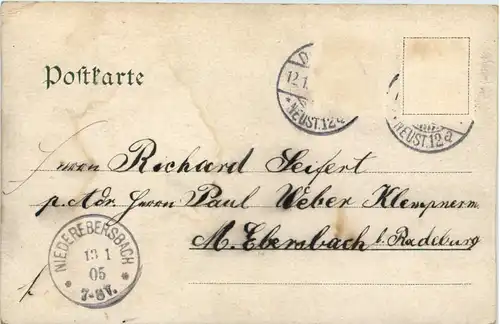 Postkarte
12.1.
*NEUST.12a
NEUST.12a
Herrn Richard Seifert
p. Adr. Herrn Paul Weber Klempnerm
N. Ebersbach b. Radeburg
NIEDEREBERSBACH
13 1
05
* 7-8V. *